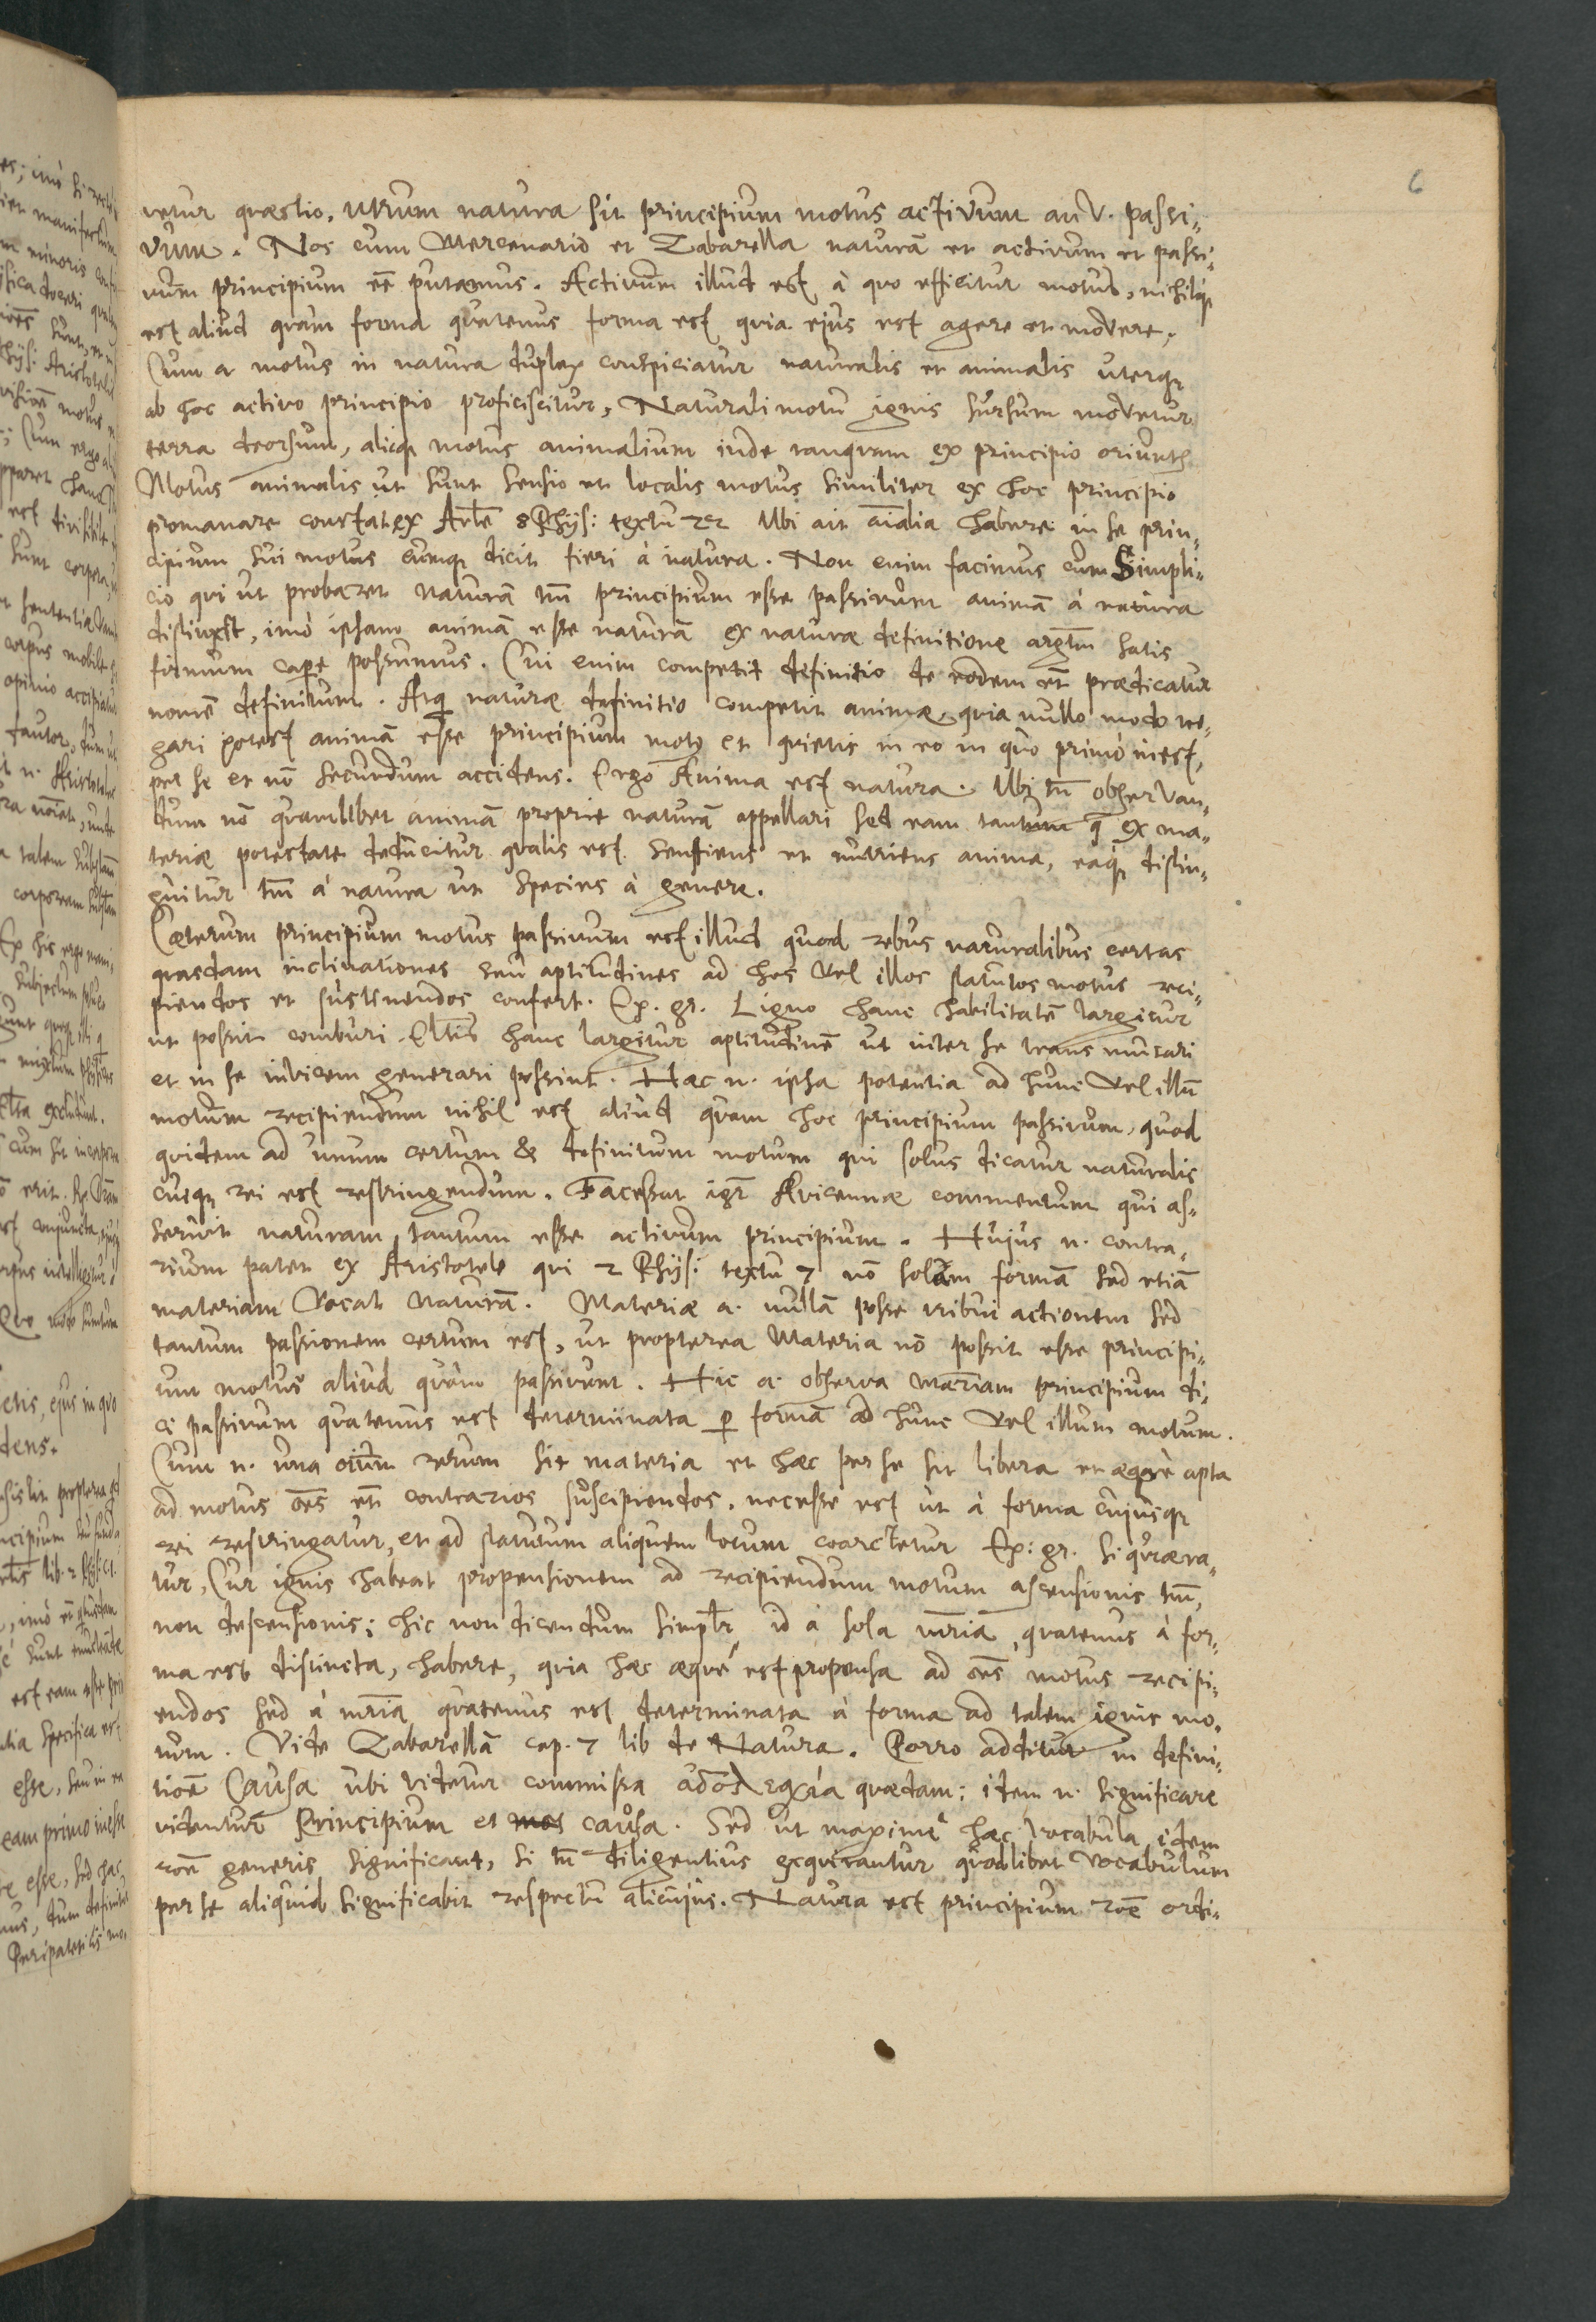 6
vetur quæstio, utrum natura sit principium motus activum an v. passi-
vum. Nos cum Mercenario et Zabarella naturā et activum et passi-
vum principium eē putamus. Activum illud est, à quo efficitur motus, nihilq
est aliud quam forma quatenus forma est quia ejus est agere et movere.
Cum a motus in natura duplex conspiciatur naturalis et animalis uterq
ab hoc activo principio proficiscitur, Naturali motu ignis sursum movetur
terra deorsum, aliiq motus animalium inde tanquam ex principio oriunt
Motus animalis ut sunt sensio et localis motus similiter ex hoc principio
promanare constat ex Artle 8 Phys: textu Ubi ait aīalia habere in se prin-
cipium sui motus eumq dicit fieri à natura. Non enim facimus cum Simpli-
cio qui ut probaret naturā tm principium esse passivum animā à natura
distinxit, imò ipsam animā esse naturā ex naturæ definitione argtm satis
firmum capere possumus. Cui enim competit definitio de eodem et prædicatur
nomē definitum. Atq naturæ definitio competit animæ, quia nullo modo ne-
gari potest animā esse principium motus et quietis in eo in quo primò inest,
per se et nō secundum accidens. Ergo Anima est natura. Ubi tn observan-
dum nō quamlibet animā proprie naturā appellari sed eam tantum q ex ma-
teriæ potestate deducitur qualis est sentiens et nutriens anima, eaq distin-
guitur tm à natura ut species à genere.
Cæterum principium motus passivum est illud quod rebus naturalibus certas
quasdam inclinationes seu aptitudines ad hos vel illos statutos motus reci-
piendos et sustinendos confert. Ex. gr. Ligno hanc habilitatē largitur
ut possit comburi. Eltis hanc largitur aptitudinē ut inter se transmutari
et in se invicem generari possint. Hæc n. ipsa potentia ad hunc vel illū
motum recipiendum nihil est aliud quam hoc principium passivum, quod
quidem ad unum certum & definitum motum qui solus dicatur naturalis
cuiq rei est restringendum. Facessat igr Avicennæ commentum qui as-
seruit naturam tantum esse activum principium. Hujus n. contra-
rium patet ex Aristotele qui 2 Phys: textu 7 nō solam formā sed etiā
materiam vocat naturā. Materiæ a. nullā posse tribui actionem sed
tantum passionem certum est, ut propterea Materia nō possit esse principi-
um motus aliud quam passivum. Hic a. observa materiam principium di-
ci passivum quatenus est determinata p formā ad hunc vel illum motum.
Cum n. una oium rerum sit materia et hæc per se sit libera et æque apta
ad motus oēs et contrarios suscipiendos, necesse est ut à forma cujusq
rei restringatur, et ad statutum aliquem locum coarctetur Ex: gr. si quæra-
tur, Cur ignis habeat propensionem ad recipiendum motum ascensionis tm,
non descensionis; hic non dicendum simplr id à sola mria, quatenus à for-
ma est distincta, habere, quia hæc æquè est propensa ad oēs motus recipi-
endos sed à mria quatenus est determinata à forma ad talem ignis mo-
tum. Vide Zabarellā cap. 7 lib de Natura. Porro additur in defini-
tioē Causa ubi videtur commissa quædam: idem n. significare
videntur Principium et causa. Sed ut maximè hæc vocabula idem
roē generis significant, si tn diligentius exquirantur quodlibet vocabulum
per se aliquid significabit respectu alicujus. Natura est principium roē ordi-